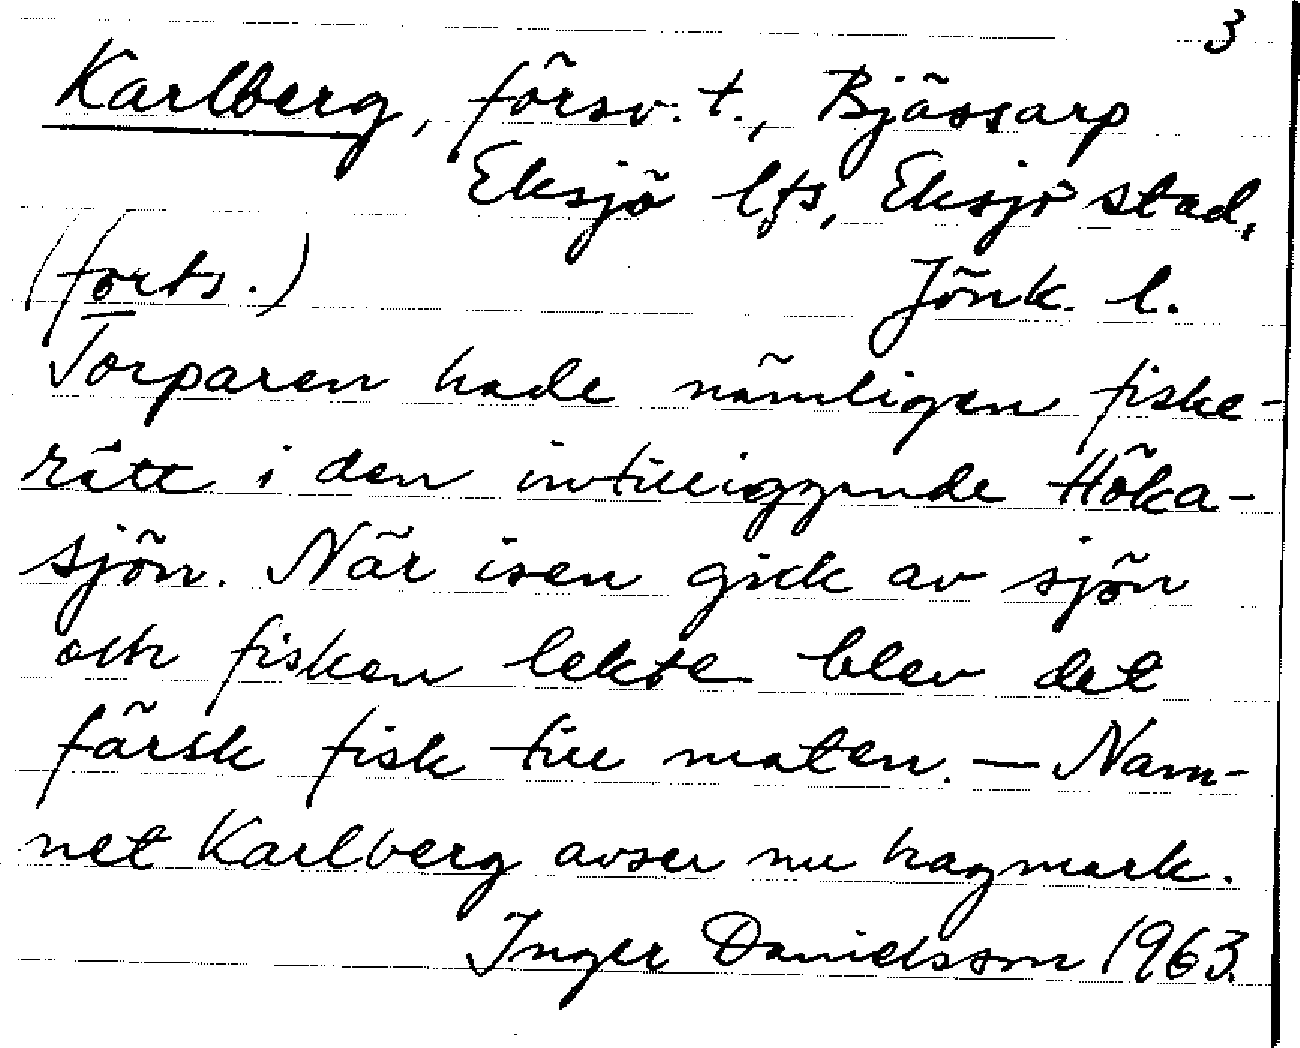 3
Karlberg, försv. t., Bjässarp
Eksjö lfs, Eksjö stad,
(forts.) Jönk. l.
Torparen hade nämligen fiske-
rätt i den intilliggande Höka-
sjön. När isen gick av sjön
och fisken lekte blev det
färsk fisk till maten. — Nam-
net Karlberg avser nu hagmark.
Inger Danielsson 1963.